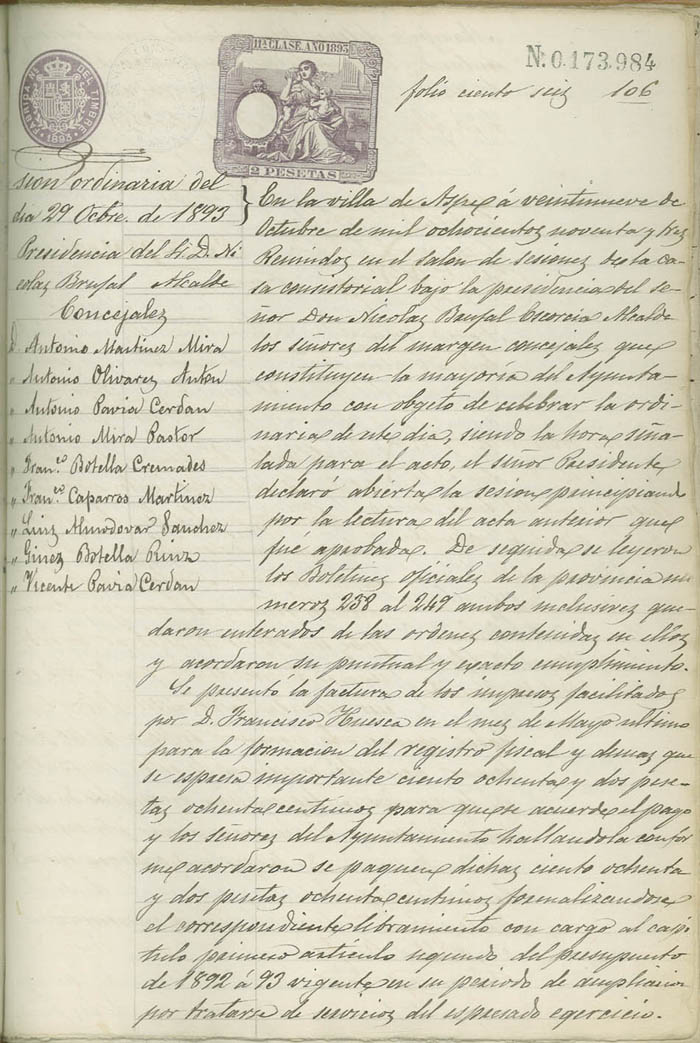 FABRICA Nal. DEL TIMBRE
1893
11ª CLASE. AÑO 1893
2 PESETAS
Nº. 0.173.984
folio ciento seiz 106
sion ordinaria del
dia 29 Octbre. de 1893
Presidencia del Sr. D. Ni
colaz Brufal Alcalde
Concejalez
D. Antonio Martinez Mira
" Antonio Olivarez Anton
" Antonio Pavia Cerdan
" Antonio Mira Pastor
" Fran.co Botella Cremades
" Fran.co Caparros Martinez
" Luiz Almodovar Sanchez
" Ginez Botella Ruiz
" Vicente Pavia Cerdan
En la villa de Aspe á veintinueve de
Octubre de mil ochocientoz noventa y trez
Reunidoz en el salon de sesionez de la ca-
sa consistorial bajo la presidencia del se-
ñor Don Nicolaz Brufal Escorcia Alcalde
los señorez del margen concejalez que
constituyen la mayoria del Ayunta-
miento con objeto de celebrar la ordi-
naria de este dia, siendo la hora seña-
lada para el acto, el señor Presidente
declaró abierta la sesion principiando
por la lectura del acta anterior que
fué aprobada. De seguida se leyeron
los Boletinez oficialez de la provincia nu
meroz 238 al 249 ambos inclusivez que-
daron enterados de las ordenez contenidaz en elloz
y acordaron su puntual y exacto cumplimiento.
Se presentó la factura de los impresoz facilitadoz
por D. Francisco Huesca en el mez de Mayo ultimo
para la formacion del registro fiscal y demaz que
se espresa importante ciento ochenta y dos pese-
taz ochenta centimoz para que se acuerde el pago
y los señorez del Ayuntamiento hallandola confor
me acordaron se paguen dichaz ciento ochenta
y dos pesetaz ochenta centimoz formalizandose
el correspondiente libramiento con cargo al capi
tulo primero articulo segundo del presupuesto
de 1892 á 93 vigente en su periodo de ampliacion
por tratarse de servicioz del espresado egercicio.